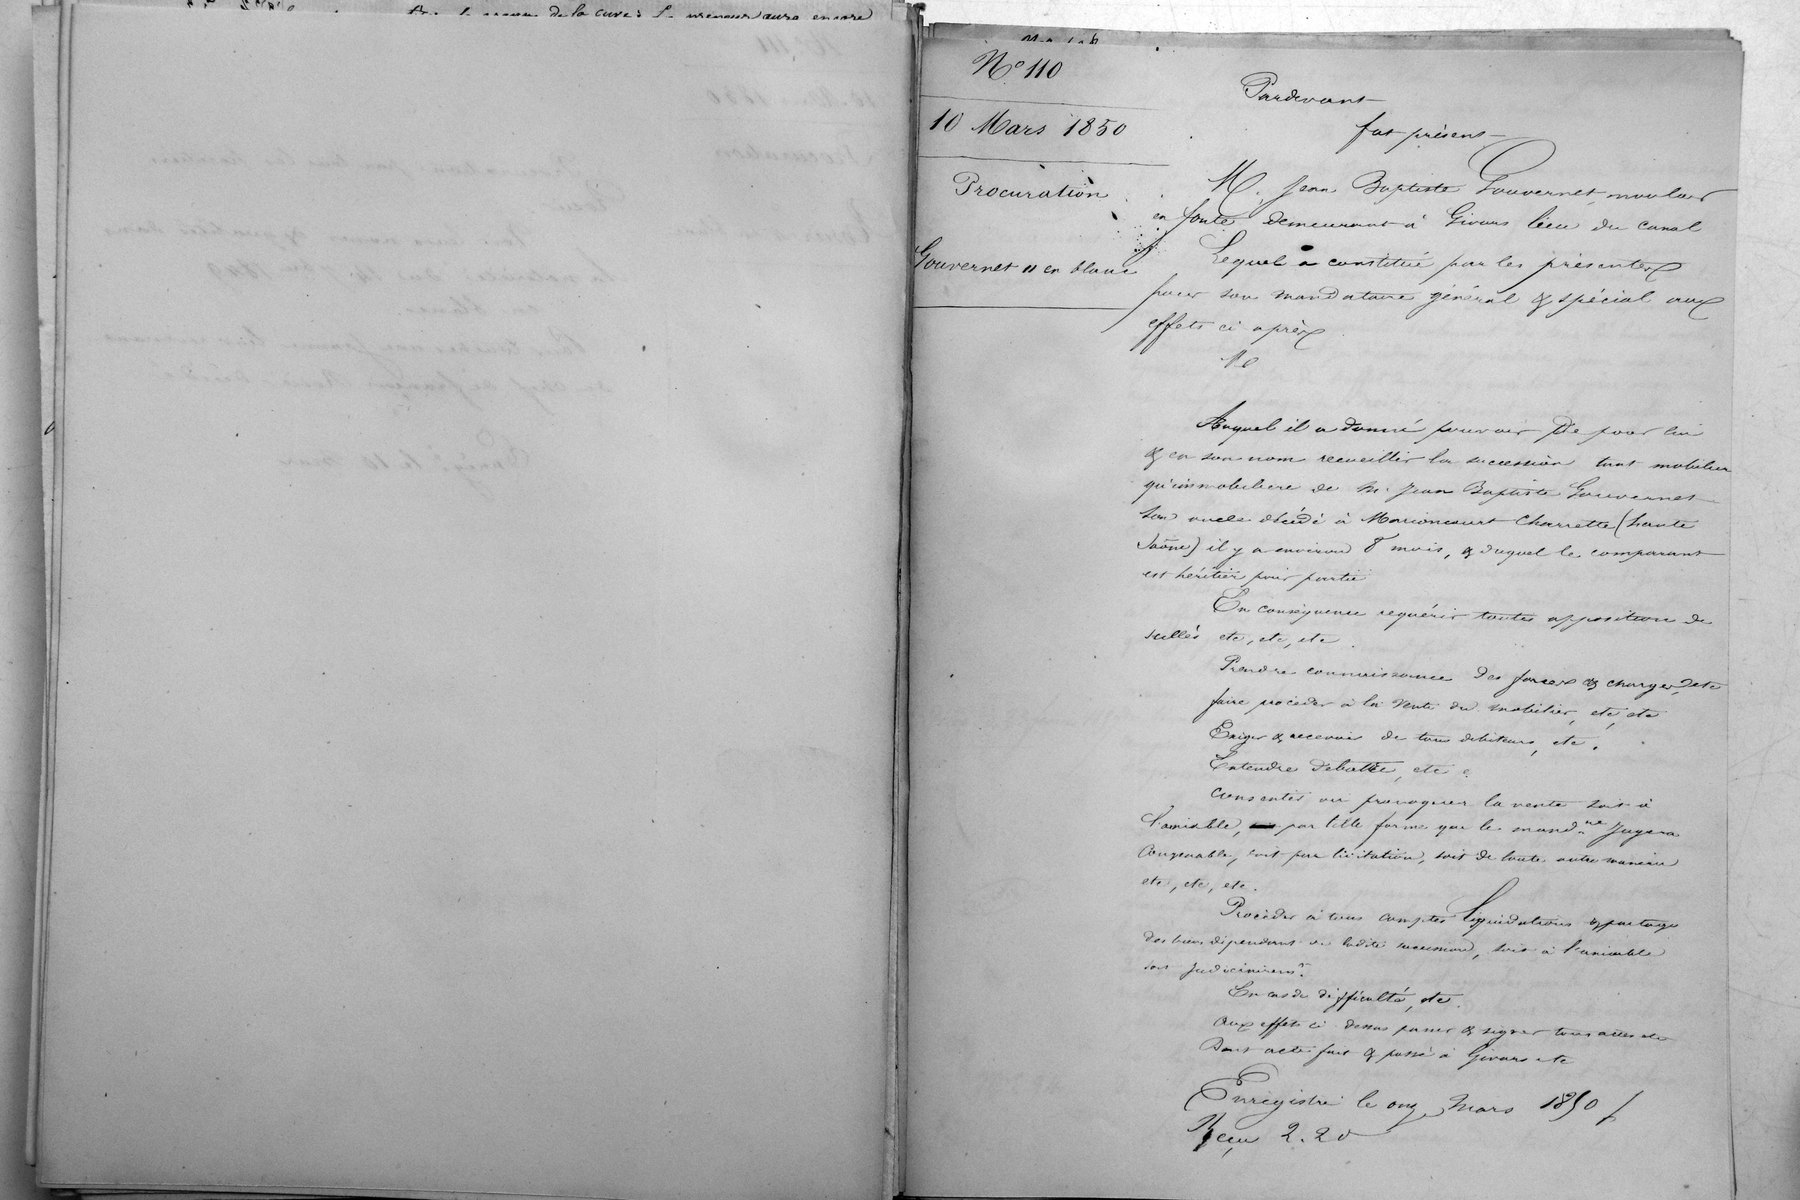 de la cure : Le preneur aura encore
N° 110
10 Mars 1850
Procuration
Gouvernet // en blanc
Pardevant
fut présent
M. Jean Baptiste Gouvernet, mouleur
en fonte demeurant à Givors lieu du canal
Lequel a constitué par les présentes
pour son mandataire général & spécial aux
effets ci après
Me
Auquel il a donné pouvoir De pour lui
& en son nom recueillir la succession tant mobilière
qu'immobilière de M. Jean Baptiste Gouvernet
son oncle décédé à Charrette (haute
Saône) il y a environ 8 mois, & duquel le comparant
est héritier pour partie
En conséquence requérir toutes apposition de
scellés etc, etc, etc.
Prendre connaissance des forces & charges, etc
faire procéder à la vente du mobilier, etc, etc
Exiger & recevoir de tous débiteurs, etc.
Entendre débattre, etc.
Consentir ou provoquer la vente soit à
l'amiable, par telle forme que le mand.re Jugera
Convenable, soit par licitation, soit de toute autre manière
etc, etc, etc.
Procéder à tous comptes Liquidations & partage
des biens dépendant de ladite succession, soit à l'amiable
soit Judiciairemt.
En cas de difficulté, etc.
aux effets ci dessus passer & signer tous actes etc
Dont acte fait & passé à Givors etc
Enregistré le onze Mars 1850 f
Reçu 2.20